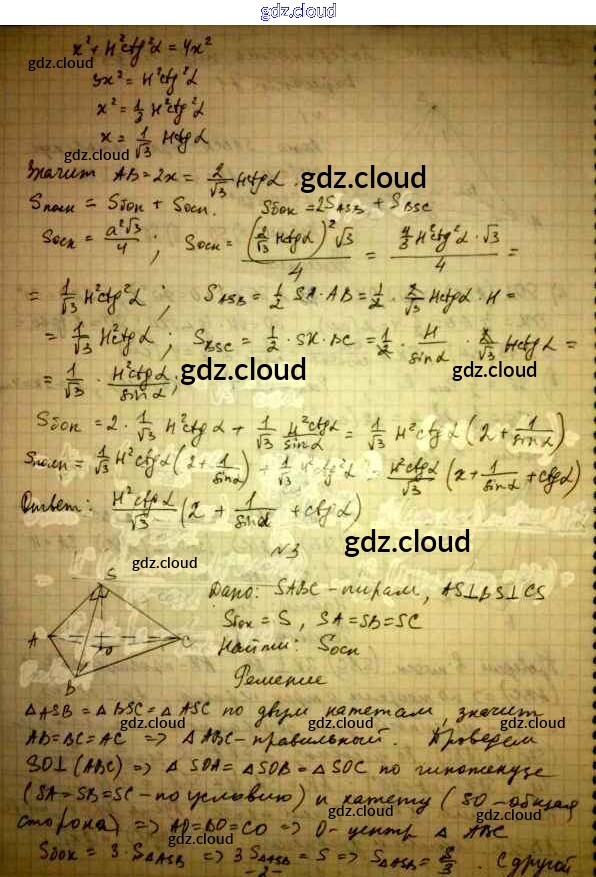 gdz.cloud
x² + H²ctg²α = 4x²
gdz.cloud
3x² = H²ctg²α
gdz.cloud
x² = 1/3 H²ctg²α
x = 1/√3 Hctgα
Значит AB = 2x = 2/√3 Hctgα.
gdz.cloud
Sполн = Sбок + Sосн. Sбок = 2S ASB + S BSC
Sосн = a²√3/4; Sосн = (2/√3 Hctgα)²√3/4 = 4/3 H²ctg²α · √3/4 =
gdz.cloud
= 1/√3 H²ctg²α; S ASB = 1/2 SA · AB = 1/2 · 2/√3 Hctgα · H =
gdz.cloud
= 1/√3 H²ctgα; S BSC = 1/2 · SK · BC = 1/2 · H/sinα · 2/√3 Hctgα =
gdz.cloud
= 1/√3 · H²ctgα/sinα;
gdz.cloud
Sбок = 2 · 1/√3 H²ctgα + 1/√3 H²ctgα/sinα = 1/√3 H²ctgα (2 + 1/sinα)
Sполн = 1/√3 H²ctgα (2 + 1/sinα) + 1/√3 H²ctg²α = H²ctgα/√3 (2 + 1/sinα + ctgα)
gdz.cloud
Ответ: H²ctgα/√3 (2 + 1/sinα + ctgα)
gdz.cloud
N3
gdz.cloud
Дано: SABC – пирам, AS⊥BS⊥CS
gdz.cloud
Sбок = S, SA=SB=SC
Найти: Sосн
gdz.cloud
Решение
S
A
O
C
B
△ASB = △BSC = △ASC по двум катетам, значит
gdz.cloud
gdz.cloud
AB=BC=AC => △ABC – правильный. Проведем
SO⊥(ABC) => △SOA = △SOB = △SOC по гипотенузе
(SA=SB=SC – по условию) и катету (SO – общая
gdz.cloud
gdz.cloud
сторона) => AO=BO=CO => O – центр △ABC
gdz.cloud
Sбок = 3 · S△ASB => 3S△ASB = S => S△ASB = S/3. С другой
-2-